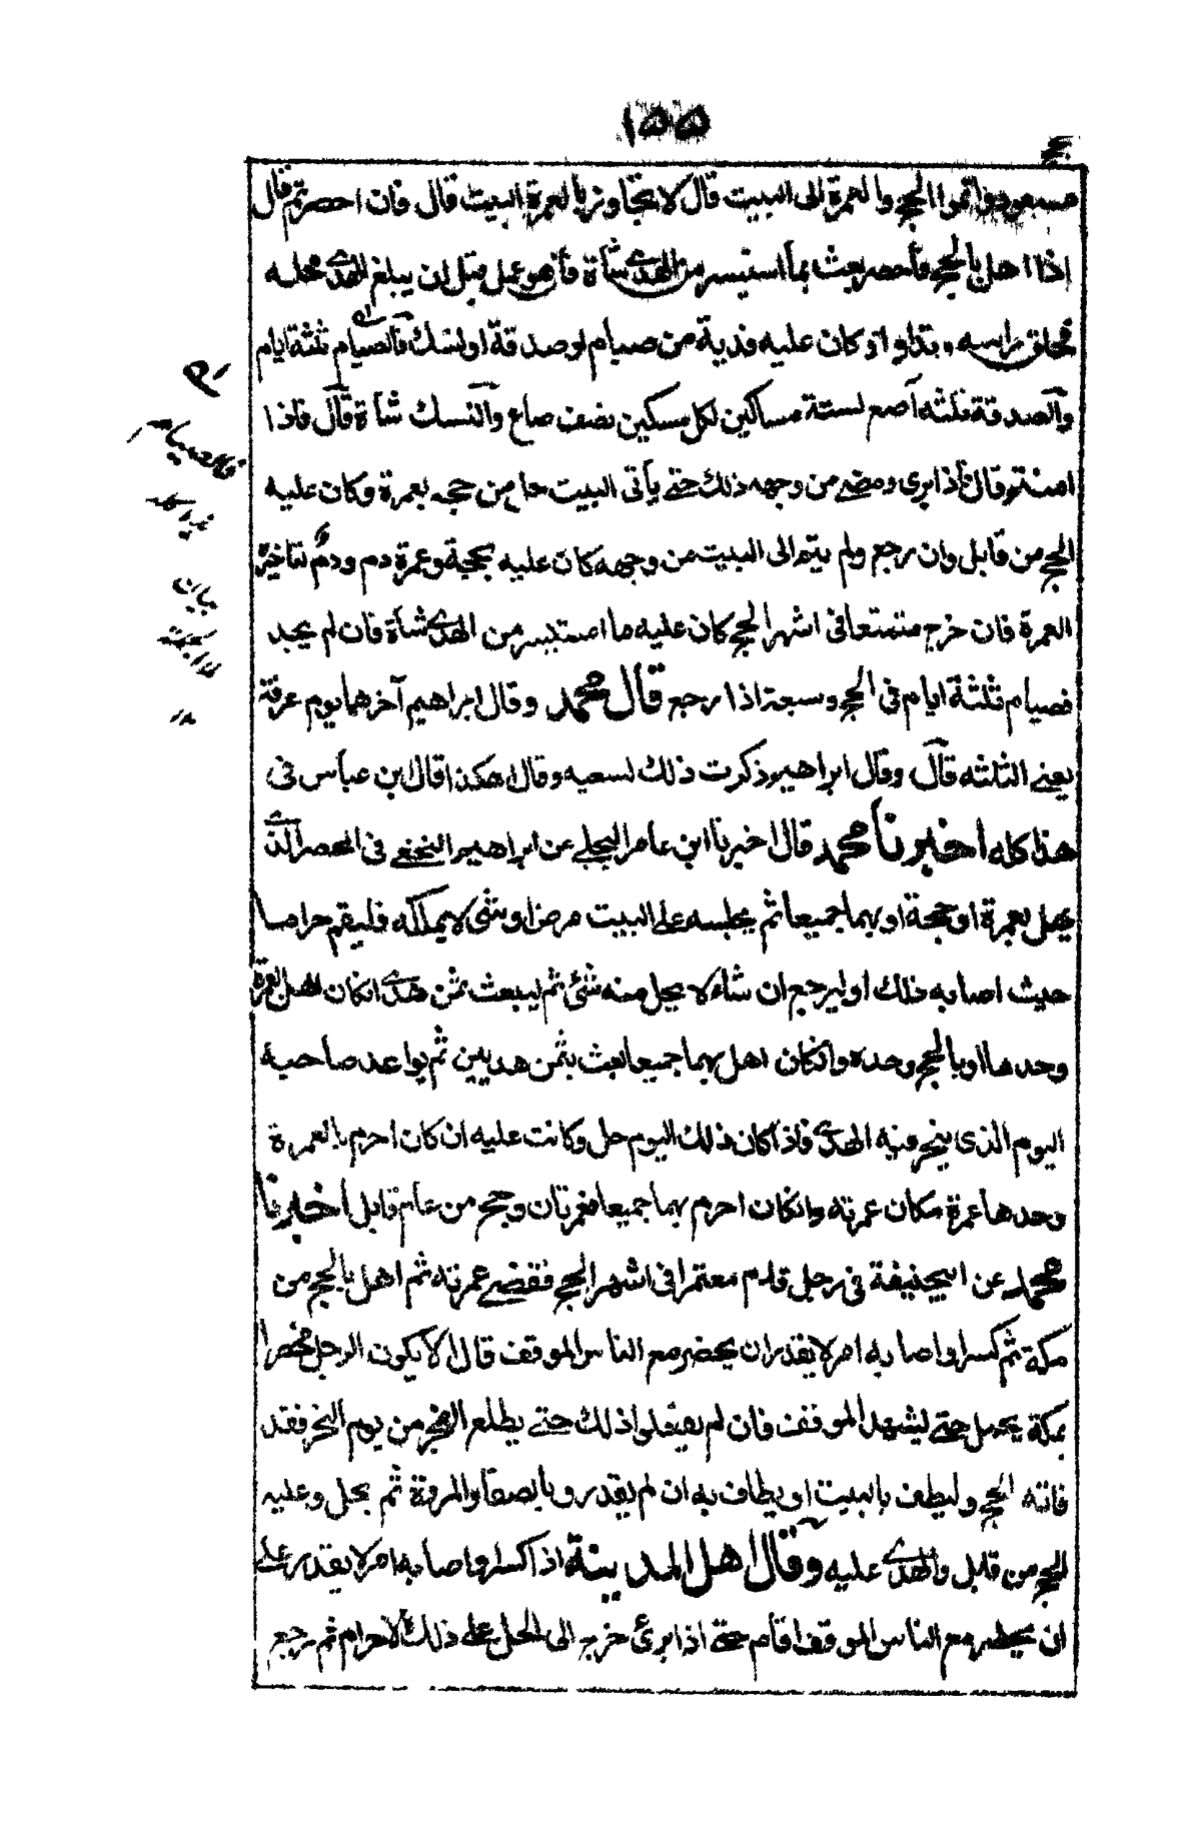 ۱۵۵
حج
مسعود واتموا الحج والعمرة الى البيت قال لا تجاوز بالعمرة البيت قال فان احصرتم قال
اذا اهل بالحج فاحصر بعث بما استيسر من الهدى شاة فان هو عجل قبل ان يبلغ الهدى محله
فحلق راسه وتداوا او كان عليه فدية من صيام او صدقة او نسك فالصيام ثلثة ايام
والصدقة ثلثه آصع لستة مساكين لكل مسكين نصف صاع والنسك شاة قال فاذا
امنتم قال فاذا برى ومضى من وجهه ذلك حتى ياتى البيت حل من حجه بعمرة وكان عليه
الحج من قابل وان رجع ولم يتم الى البيت من وجهه كان عليه حجة وعمرة دم ودم لتاخيره
العمرة فان خرج متمتعا فى اشهر الحج كان عليه ما استيسر من الهدى شاة فان لم يجد
فصيام ثلثة ايام فى الحج وسبعة اذا رجع قال محمد وقال ابراهيم آخرها يوم عرفة
يعنى الثلثه قال وقال ابراهيم ذكرت ذلك لسعيد وقال هكذا قال ابن عباس فى
هذا كله اخبرنا محمد قال اخبرنا ابن عامر البجلى عن ابراهيم النخعى فى المحصر الذى
يهل بعمرة او بحجة او بهما جميعا ثم يحبسه على البيت مرض او شئ لا يملكه فليقم حراما
حيث اصابه ذلك او ليرجع ان شاء لا يحل منه شئ ثم ليبعث بثمن هدى انكان اهل بالعمرة
وحدها او بالحج وحده وانكان اهل بهما جميعا بعث بثمن هديين ثم يواعد صاحبه
اليوم الذى ينحر فيه الهدى فاذا كان ذلك اليوم حل وكانت عليه ان كان احرم بالعمرة
وحدها عمرة مكان عمرته وانكان احرم بهما جميعا فعمرتان وحج من عام قابل اخبرنا
محمد عن ابيحنيفة فى رجل قدم معتمرا فى اشهر الحج فقضى عمرته ثم اهل بالحج من
مكة ثم كسر او اصابه امر لا يقدر ان يحضر مع الناس الموقف قال لا يكون الرجل محصرا
بمكة يحمل حتى ليشهد الموقف فان لم يفعلوا ذلك حتى يطلع الفجر من يوم النحر فقد
فاته الحج وليطف بالبيت او يطاف به ان لم يقدر وبالصفا والمروة ثم يحل وعليه
الحج من قابل والهدى عليه وقال اهل المدينة اذا كسر او اصابه امر لا يقدر على
ان يحضر مع الناس الموقف اقام حتى اذا برئ خرج الى الحل على ذلك الاحرام ثم رجع